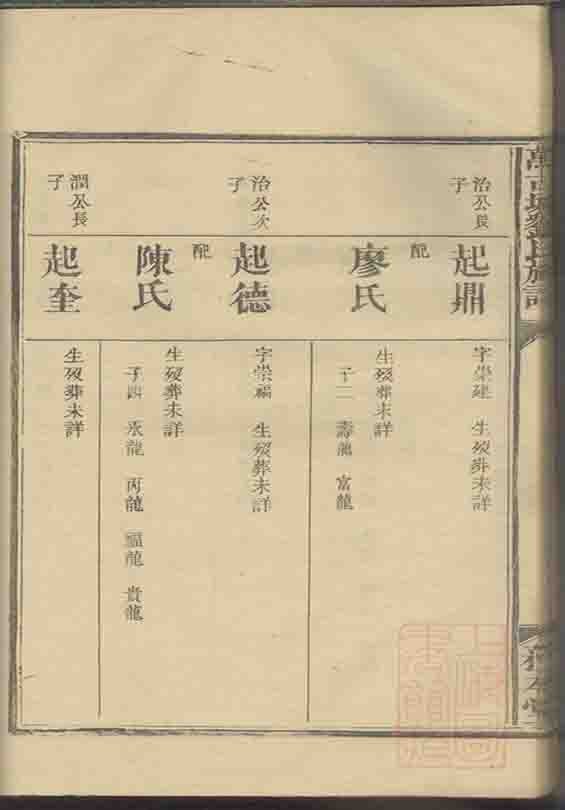 治公長子
起鼎
字崇建 生殁葬未詳
配
廖氏
生殁葬未詳
子二 壽龍 富龍
治公次子
起德
字崇福 生殁葬未詳
配
陳氏
生殁葬未詳
子四 丙龍 福龍 貴龍
潤公長子
起奎
生殁葬未詳